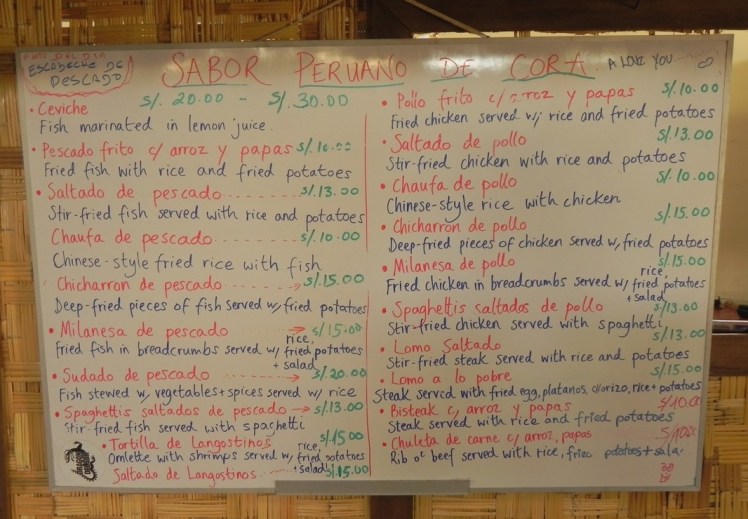 PLATO DEL DIA
ESCABECHE DE
PESCADO
SABOR PERUANO DE CORA
A LOVE YOU
• Ceviche S/. 20.00 - S/. 30.00
Fish marinated in lemon juice.
• Pescado frito c/ arroz y papas S/. 10.00
Fried fish with rice and fried potatoes
• Saltado de pescado S/. 13.00
Stir-fried fish served with rice and potatoes
Chaufa de pescado S/. 10.00
Chinese-style fried rice with fish
Chicharron de pescado S/. 15.00
Deep-fried pieces of fish served w/ fried potatoes
• Milanesa de pescado S/ 15.00
fried fish in breadcrumbs served w/ rice, fried potatoes + salad
• Sudado de pescado S/. 20.00
Fish stewed w/ vegetables + spices served w/ rice
• Spaghettis saltados de pescado S/. 13.00
Stir-fried fish served with spaghetti
• Tortilla de Langostinos S/. 15.00
Omlette with shrimps served w/ rice, fried potatoes + salad
Saltado de Langostinos S/. 15.00
• Pollo frito c/ arroz y papas S/. 10.00
Fried chicken served w/ rice and fried potatoes
• Saltado de pollo S/. 13.00
Stir-fried chicken with rice and potatoes
• Chaufa de pollo S/. 10.00
Chinese-style rice with chicken
• Chicharron de pollo S/. 15.00
Deep-fried pieces of chicken served w/ fried potatoes
• Milanesa de pollo S/. 15.00
Fried chicken in breadcrumbs served w/ rice, fried potatoes + salad
• Spaghettis saltados de pollo S/ 13.00
Stir-fried chicken served with spaghetti
• Lomo Saltado S/. 13.00
Stir-fried steak served with rice and potatoes
• Lomo a lo pobre S/. 15.00
Steak served with fried egg, platanos, chorizo, rice + potatoes
• Bisteak c/ arroz y papas S/ 10.00
Steak served with rice and fried potatoes
• Chuleta de carne c/ arroz, papas S/ 10.00
Rib of beef served with rice, fried potatoes + sala